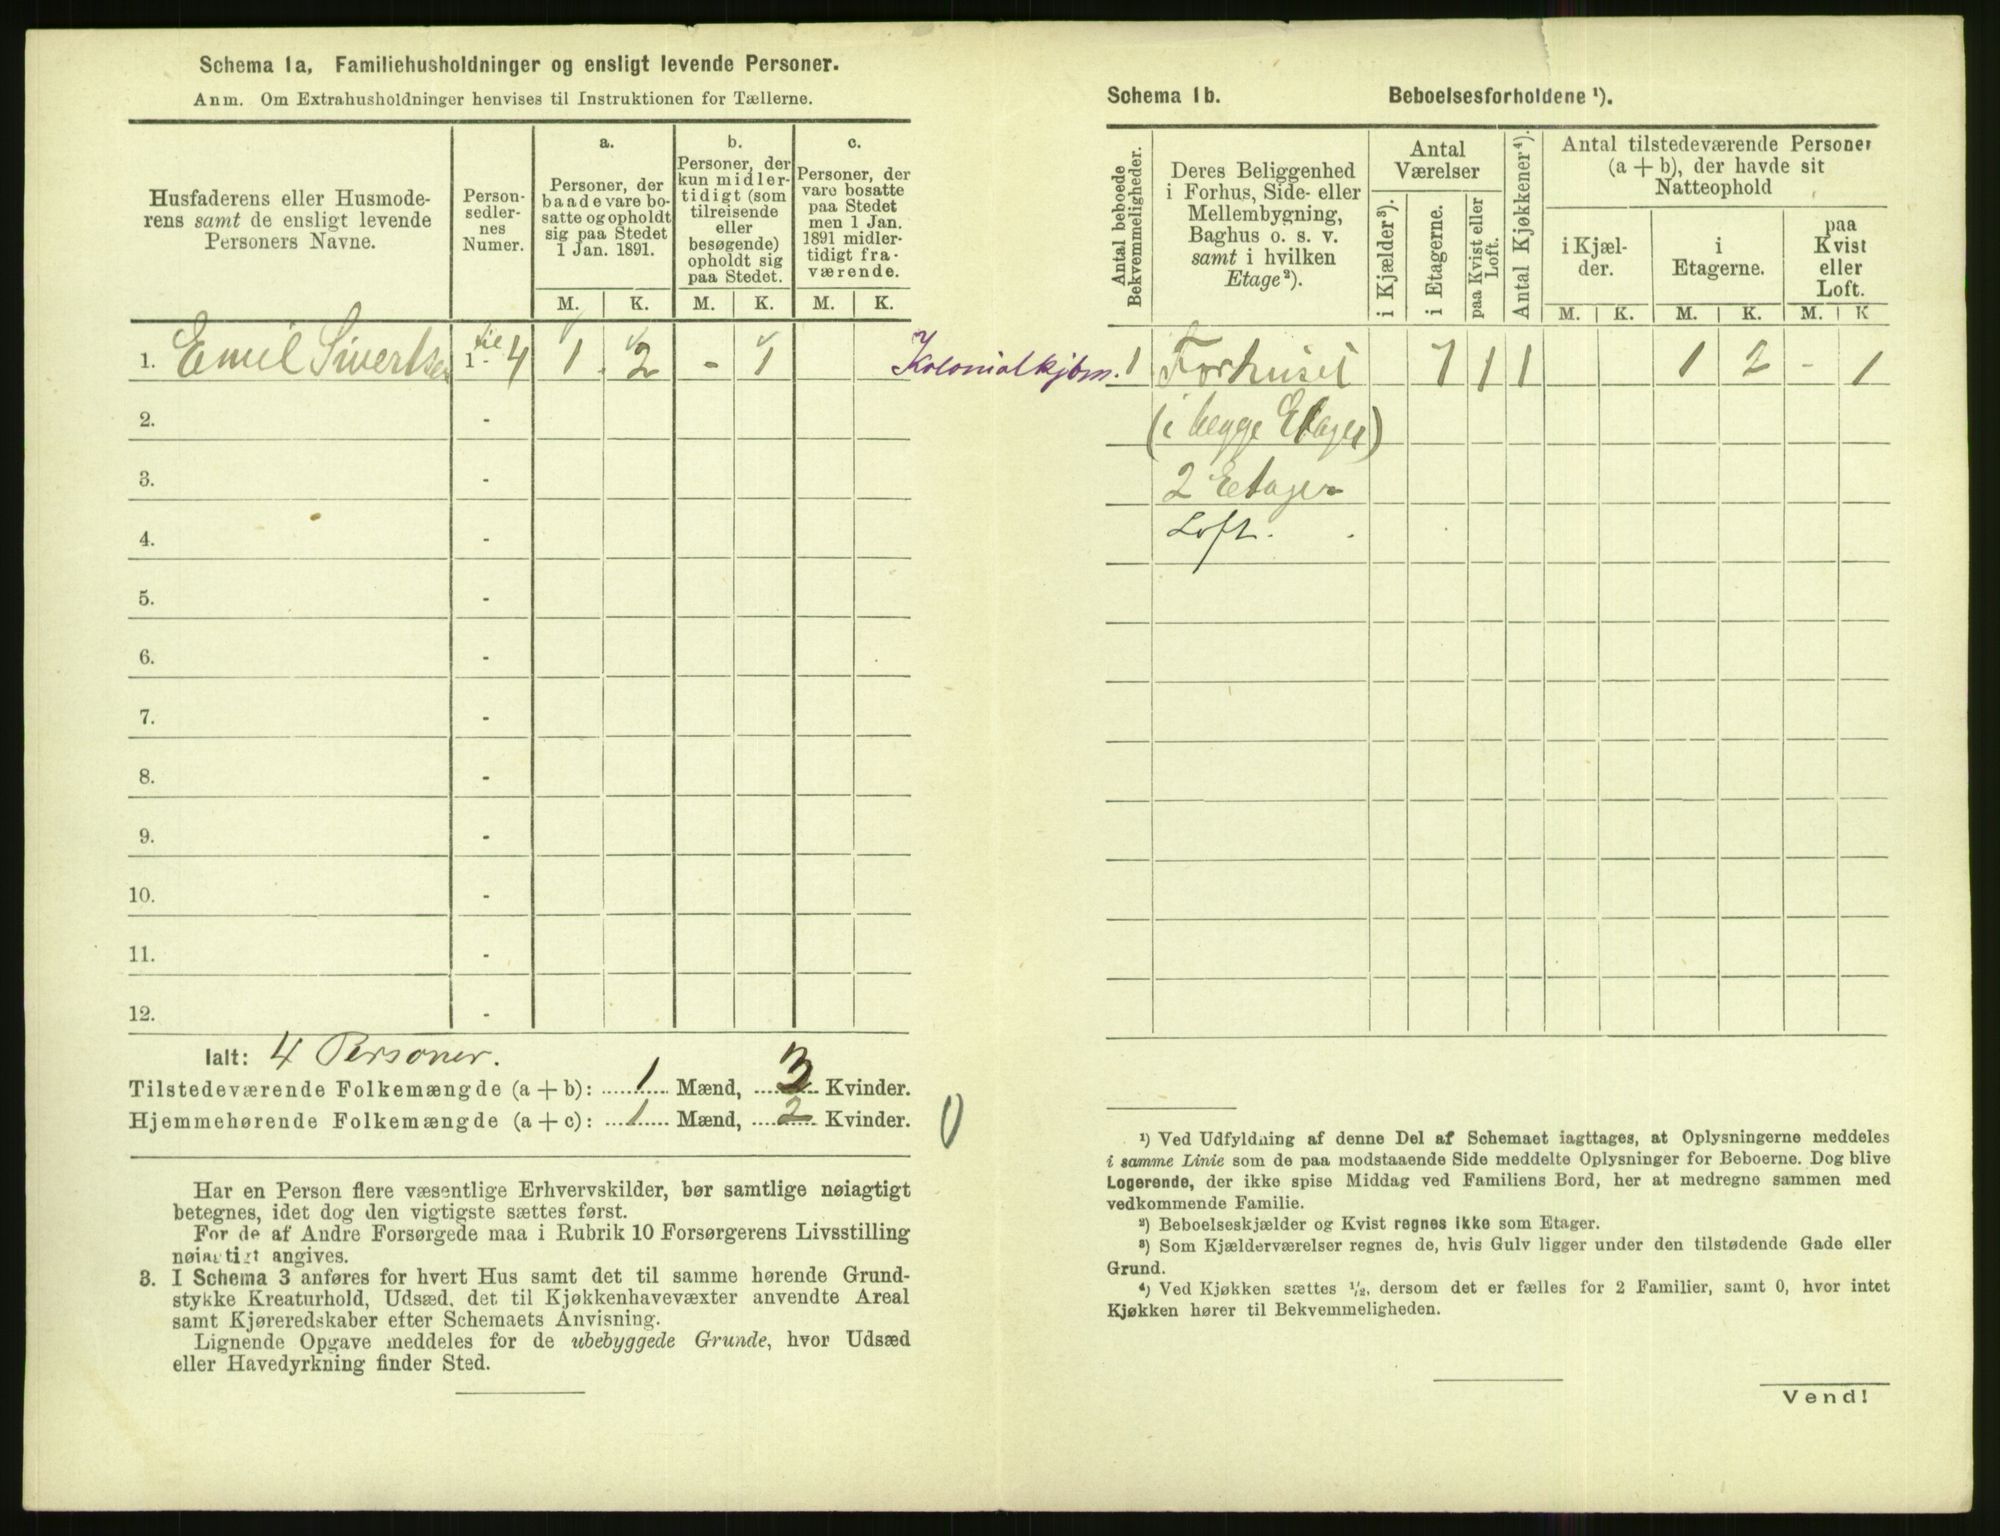 Schema 1a, Familiehusholdninger og ensligt levende Personer.
Anm. Om Extrahusholdninger henvises til Instruktionen for Tællerne.
Husfaderens eller Husmode-
rens samt de ensligt levende
Personers Navne.
Person-
sedler-
nes
Numer.
a.
Personer, der
baade vare bo-
satte og opholdt
sig paa Stedet
1 Jan. 1891.
b.
Personer, der
kun midler-
tidigt (som
tilreisende
eller
besøgende)
opholdt sig
paa Stedet.
c.
Personer, der
vare bosatte
paa Stedet
men 1 Jan.
1891 midler-
tidigt fra-
værende.
M. K. M. K. M. K.
1. Emil Sivertsen 1 til 4 1 2 - 1 Kolonialkjøm.
2. -
3. -
4. -
5. -
6. -
7. -
8. -
9. -
10. -
11. -
12. -
Ialt: 4 Personer.
Tilstedeværende Folkemængde (a + b): 1 Mænd, 3 Kvinder.
Hjemmehørende Folkemængde (a + c): 1 Mænd, 2 Kvinder.
Har en Person flere væsentlige Erhvervskilder, bør samtlige nøiagtigt
betegnes, idet dog den vigtigste sættes først.
For de af Andre Forsørgede maa i Rubrik 10 Forsørgerens Livsstilling
nøiagtigt angives.
3. I Schema 3 anføres for hvert Hus samt det til samme hørende Grund-
stykke Kreaturhold, Udsæd, det til Kjøkkenhavevæxter anvendte Areal
samt Kjøreredskaber efter Schemaets Anvisning.
Lignende Opgave meddeles for de ubebyggede Grunde, hvor Udsæd
eller Havedyrkning finder Sted.
Schema 1b. Beboelsesforholdene ¹).
Antal beboede
Bekvemmeligheder.
Deres Beliggenhed
i Forhus, Side- eller
Mellembygning,
Baghus o. s. v.
samt i hvilken
Etage²).
Antal
Værelser
i Kjælder³).
i Etagerne.
paa Kvist eller
Loft.
Antal Kjøkkener⁴).
Antal tilstedeværende Personer
(a + b), der havde sit
Natteophold
i Kjæl-
der.
i
Etagerne.
paa
Kvist
eller
Loft.
M. K. M. K. M. K
1 Forhuset 7 1 1 1 2 - 1
(i begge Etager)
2 Etager
Loft.
¹) Ved Udfyldning af denne Del af Schemaet iagttages, at Oplysningerne meddeles
i samme Linie som de paa modstaaende Side meddelte Oplysninger for Beboerne. Dog blive
Logerende, der ikke spise Middag ved Familiens Bord, her at medregne sammen med
vedkommende Familie.
²) Beboelseskjælder og Kvist regnes ikke som Etager.
³) Som Kjælderværelser regnes de, hvis Gulv ligger under den tilstødende Gade eller
Grund.
⁴) Ved Kjøkken sættes ½, dersom det er fælles for 2 Familier, samt 0, hvor intet
Kjøkken hører til Bekvemmeligheden.
Vend!